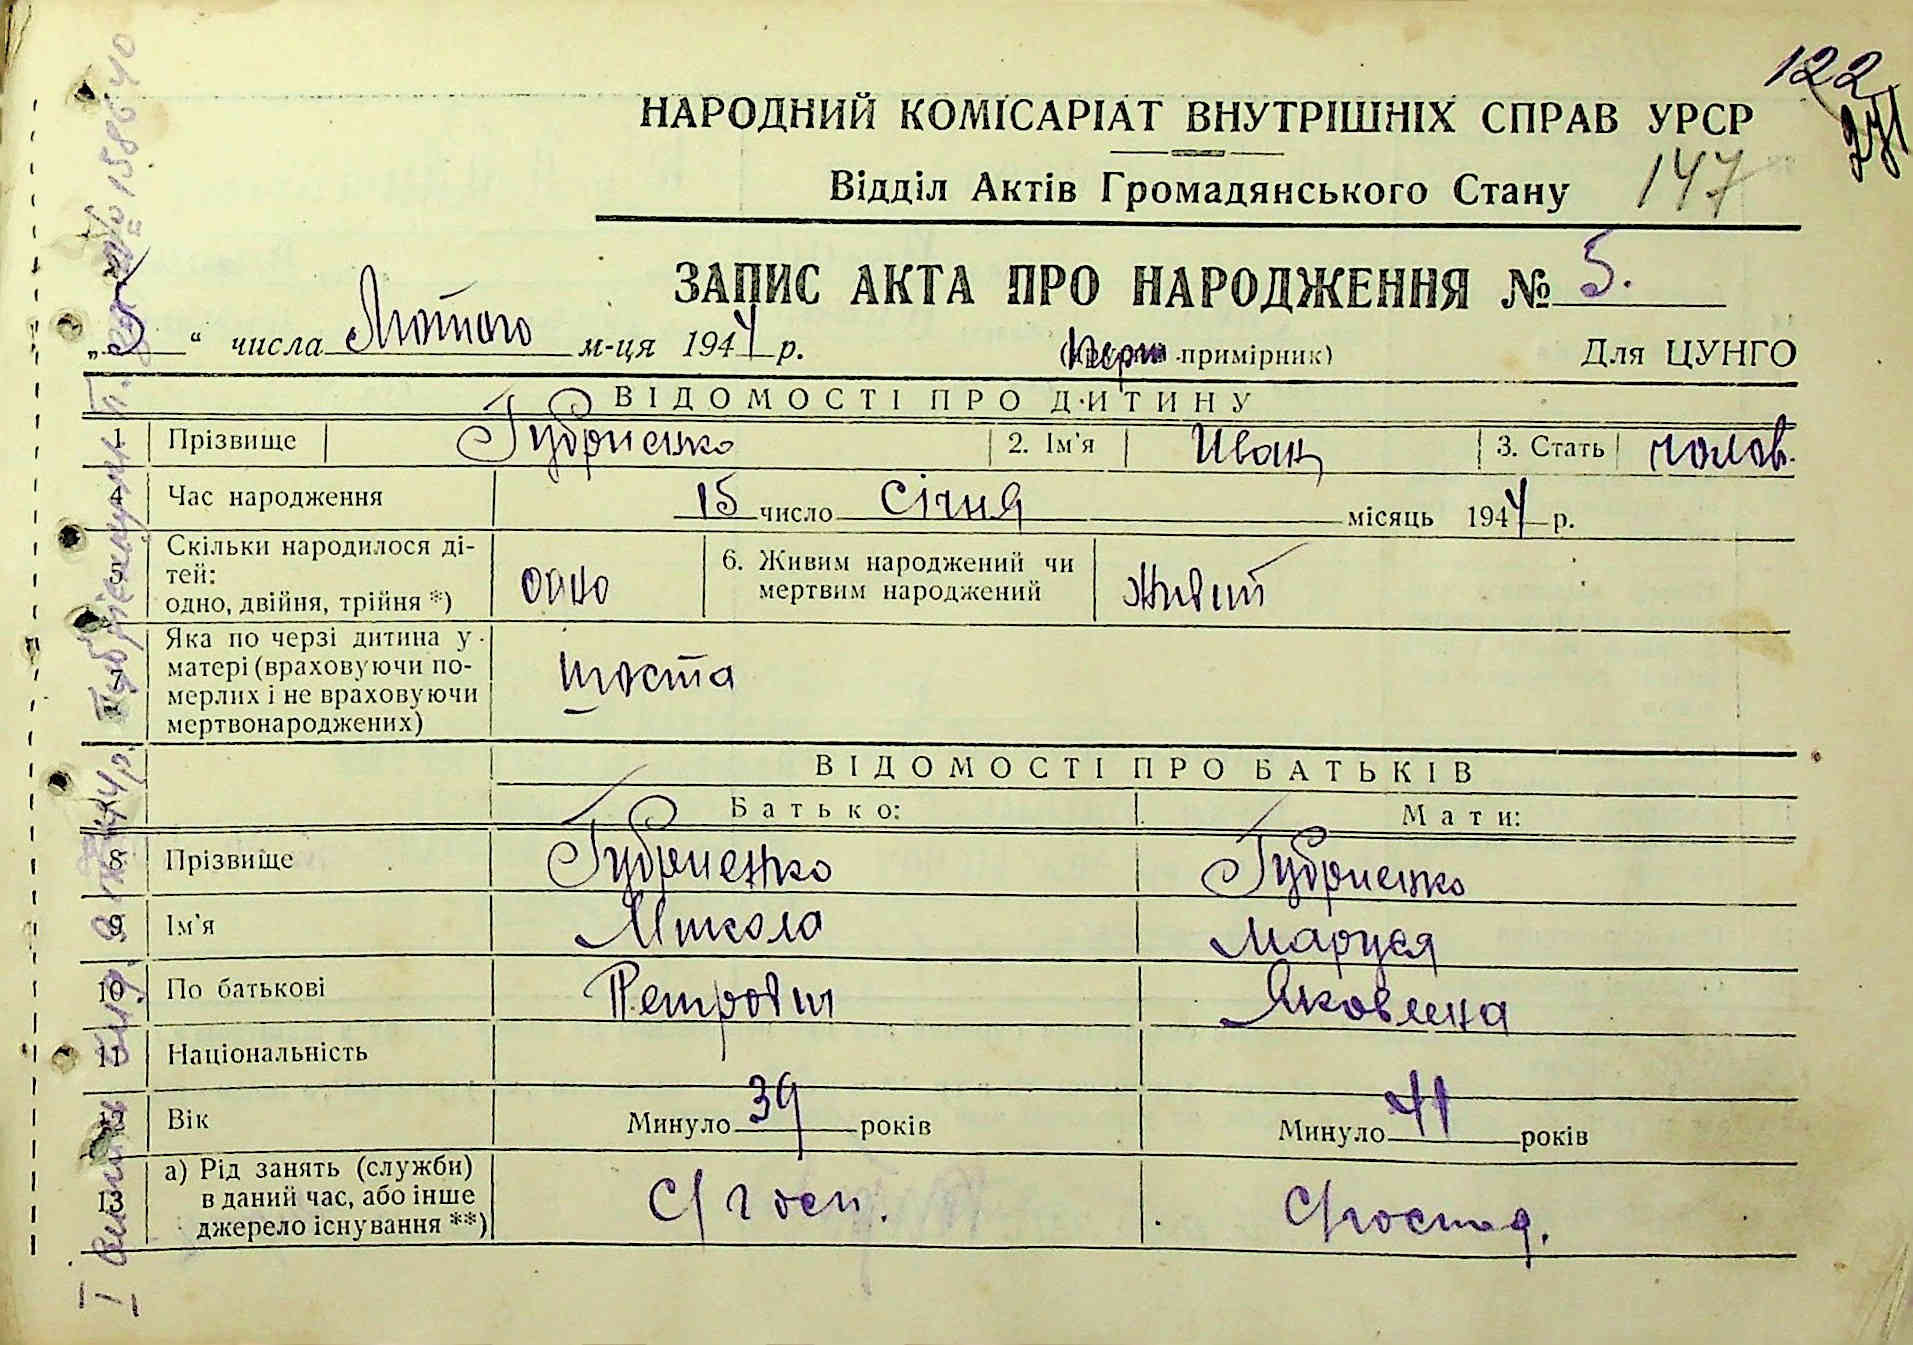 122
271
НАРОДНИЙ КОМІСАРІАТ ВНУТРІШНІХ СПРАВ УРСР
Відділ Актів Громадянського Стану 147
ЗАПИС АКТА ПРО НАРОДЖЕННЯ № 5.
„5“ числа Лютого м-ця 1944 р. (перш примірник) Для ЦУНГО
ВІДОМОСТІ ПРО ДИТИНУ
1 Прізвище Губриенко 2. Ім'я Иван 3. Стать чолов.
4 Час народження 15 число Січня місяць 1944 р.
Скільки народилося ді-
5 тей:
одно, двійня, трійня *) одно 6. Живим народжений чи
мертвим народжений Живий
Яка по черзі дитина у
матері (враховуючи по-
7 мерлих і не враховуючи
мертвонароджених) шоста
ВІДОМОСТІ ПРО БАТЬКІВ
Батько: Мати:
8 Прізвище Губриенко Губриенко
9 Ім'я Микола Маруся
10 По батькові Петрович Яковлена
11 Національність
12 Вік Минуло 39 років Минуло 41 років
а) Рід занять (служби)
13 в даний час, або інше
джерело існування **) С/госп. С/господ.